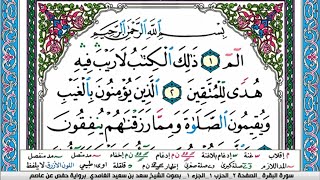 بِسْمِ ٱللَّهِ ٱلرَّحْمَٰنِ ٱلرَّحِيمِ
الٓمٓ ١ ذَٰلِكَ ٱلْكِتَٰبُ لَا رَيْبَ فِيهِ
هُدًى لِّلْمُتَّقِينَ ٢ ٱلَّذِينَ يُؤْمِنُونَ بِٱلْغَيْبِ
وَيُقِيمُونَ ٱلصَّلَوٰةَ وَمِمَّا رَزَقْنَٰهُمْ يُنفِقُونَ
سورة البقرة . الصفحة ٢ . الحزب ١ . الجزء ١ . بصوت الشيخ سعد بن سعيد الغامدي برواية حفص عن عاصم